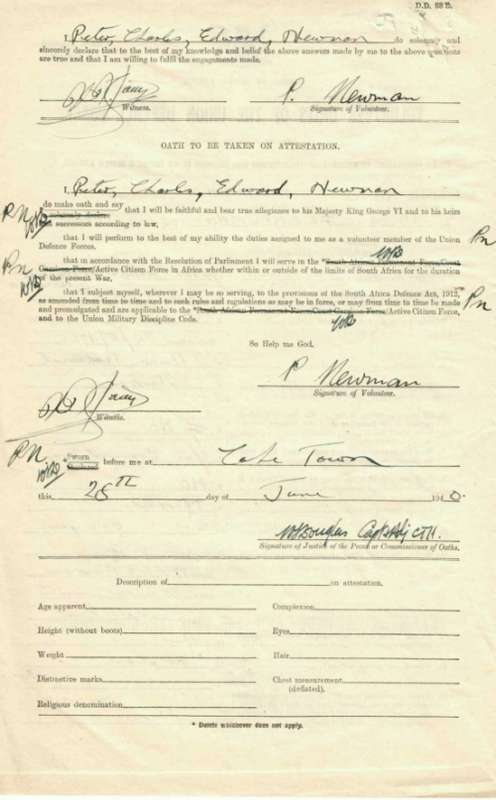 D.D. 53 B.
I, Peter, Charles, Edward, Newman do solemnly and
sincerely declare that to the best of my knowledge and belief the above answers made by me to the above questions
are true and that I am willing to fulfil the engagements made.
P. Newman
Witness. Signature of Volunteer.
OATH TO BE TAKEN ON ATTESTATION.
I, Peter, Charles, Edward, Newman
do make oath and say
PN that I will be faithful and bear true allegiance to his Majesty King George VI and to his heirs
and successors according to law,
that I will perform to the best of my ability the duties assigned to me as a volunteer member of the Union PN
Defence Forces.
PN that in accordance with the Resolution of Parliament I will serve in the *South African Permanent Force/Coast
Garrison Force/Active Citizen Force in Africa whether within or outside of the limits of South Africa for the duration
of the present War,
that I subject myself, wherever I may be so serving, to the provisions of the South Africa Defence Act, 1912, PN
as amended from time to time and to such rules and regulations as may be in force, or may from time to time be made
and promulgated and are applicable to the *South African Permanent Force/Coast Garrison Force/Active Citizen Force,
and to the Union Military Discipline Code.
So Help me God.
P Newman
Signature of Volunteer.
Witness.
PN *Sworn
Declared before me at Cape Town
this 28TH day of June 1940.
WRDouglas Capt & Adj CTH.
Signature of Justice of the Peace or Commissioner of Oaths.
Description of on attestation.
Age apparent Complexion
Height (without boots) Eyes
Weight Hair
Distinctive marks Chest measurement
(deflated).
Religious denomination
* Delete whichever does not apply.